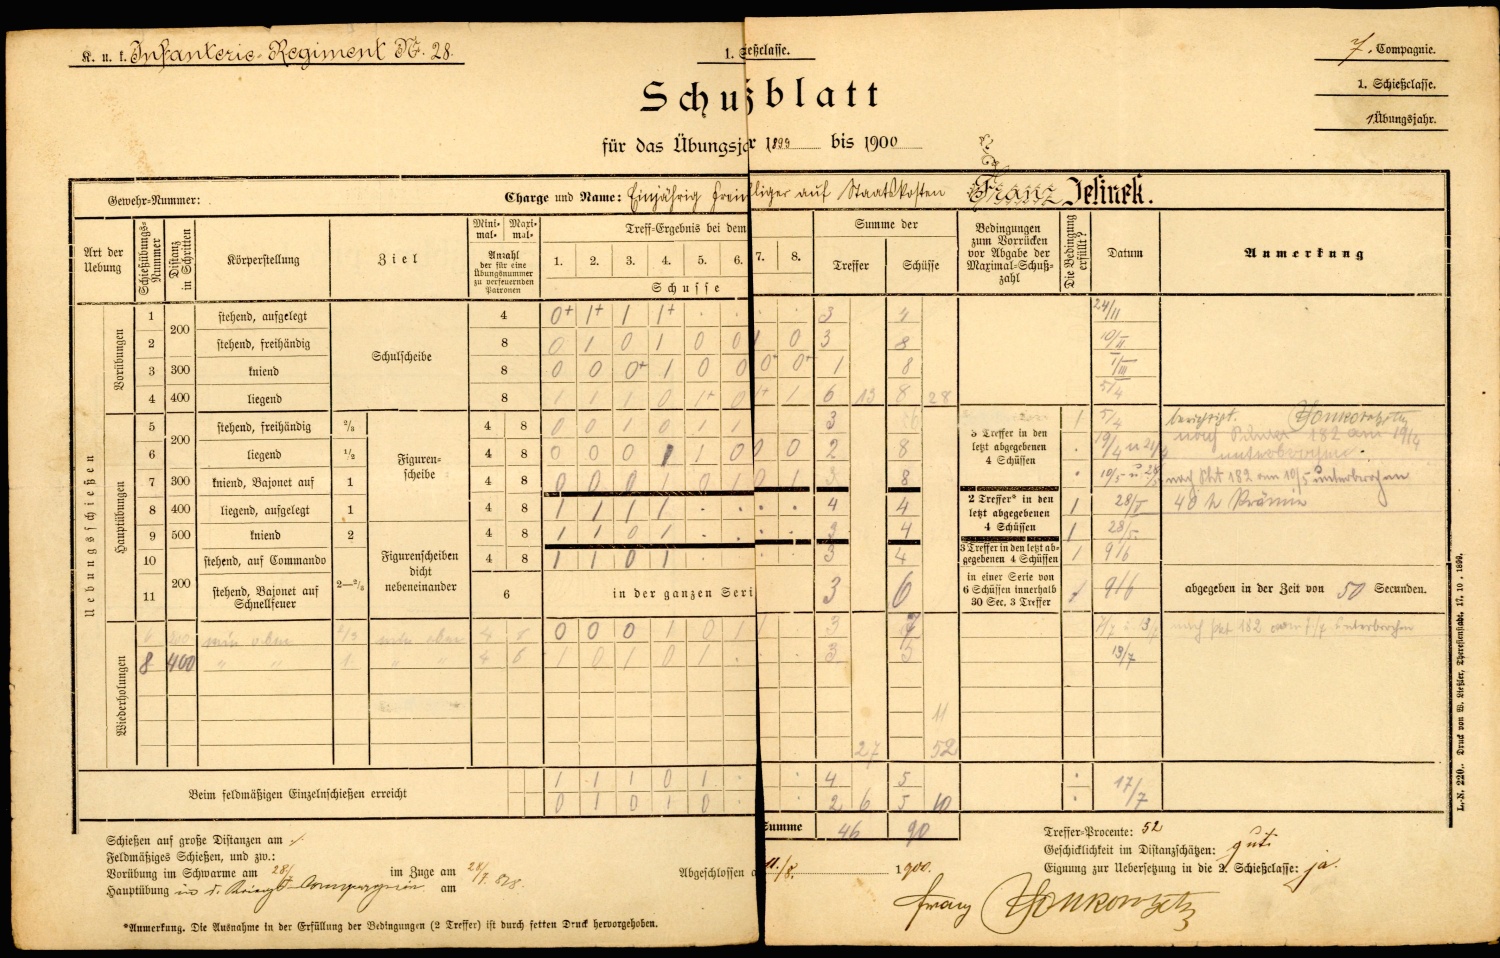 K. u. k. Infanterie-Regiment Nr. 28.
1. Schießclasse.
7. Compagnie.
1. Schießclasse.
1 Übungsjahr.
Schußblatt
für das Übungsjahr 1899 bis 1900
Gewehr-Nummer:
Charge und Name: Einjährig Freiwilliger auf Staatskosten Franz Jelinek.
Art der Uebung
Schießübungs-Nummer
Distanz in Schritten
Körperstellung
Ziel
Mini-mal- Maxi-mal-
Anzahl der für eine Übungsnummer zu verfeuernden Patronen
Treff-Ergebnis bei dem
1. 2. 3. 4. 5. 6. 7. 8.
Schusse
Summe der
Treffer Schüsse
Bedingungen zum Vorrücken vor Abgabe der Maximal-Schuß-zahl
Die Bedingung erfüllt?
Datum
Anmerkung
Uebungsschießen
Vorübungen
1 200 stehend, aufgelegt Schulscheibe 4 0+ 1+ 1 1+ · · · · 3 4 24/II
2 stehend, freihändig 8 0 1 0 1 0 0 1 0 3 8 10/II
3 300 kniend 8 0 0 0+ 1 0 0 0+ 0+ 1 8 1/III
4 400 liegend 8 1 1 1 0 1+ 0 1+ 1 6 13 8 28 5/4
Hauptübungen
5 200 stehend, freihändig 2/3 Figuren-scheibe 4 8 0 0 1 0 1 1 3 1 5/4 berichtigt.
6 liegend 1/2 4 8 0 0 0 1 0 0 0 0 2 8 3 Treffer in den letzt abgegebenen 4 Schüssen · 19/4 u 21/4 nach Punkt 182 am 19/4 unterbrochen.
7 300 kniend, Bajonet auf 1 4 8 0 0 0 1 0 1 0 1 3 8 · 10/5 u 28/5 nach Pkt 182 am 10/5 unterbrochen
8 400 liegend, aufgelegt 1 4 8 1 1 1 1 · · · · 4 4 2 Treffer* in den letzt abgegebenen 4 Schüssen 1 28/5 40 h Prämie
9 500 kniend 2 Figurenscheiben dicht nebeneinander 4 8 1 1 0 1 · · · · 3 4 1 28/5
10 200 stehend, auf Commando 2—2/3 4 8 1 1 0 1 3 4 3 Treffer in den letzt abgegebenen 4 Schüssen 1 9/6
11 stehend, Bajonet auf Schnellfeuer 6 in der ganzen Seri 3 6 in einer Serie von 6 Schüssen innerhalb 30 Sec. 3 Treffer 1 9/6 abgegeben in der Zeit von 50 Secunden.
Wiederholungen
6 200 wie oben 2/3 wie oben 4 8 0 0 0 1 0 1 1 3 7 nach Pkt 182 am 7/7 unterbrochen
8 400 " " 1 " " 4 8 1 0 1 0 1 · · · 3 5 13/7
11
27 52
Beim feldmäßigen Einzelnschießen erreicht
1 1 1 0 1 · · 4 5 · 17/7
0 1 0 1 0 · · 2 6 5 10 ·
Summe 46 90
Schießen auf große Distanzen am
Feldmäßiges Schießen, und zw.:
Vorübung im Schwarme am im Zuge am
Hauptübung am
Abgeschlossen a 11./8. 1900.
Treffer-Procente: 52
Geschicklichkeit im Distanzschätzen: gut
Eignung zur Uebersetzung in die 2. Schießclasse: ja.
*Anmerkung. Die Ausnahme in der Erfüllung der Bedingungen (2 Treffer) ist durch fetten Druck hervorgehoben.
L.-N. 220. Druck von W. Ließler, Theresienstadt. 17. 10. 1899.